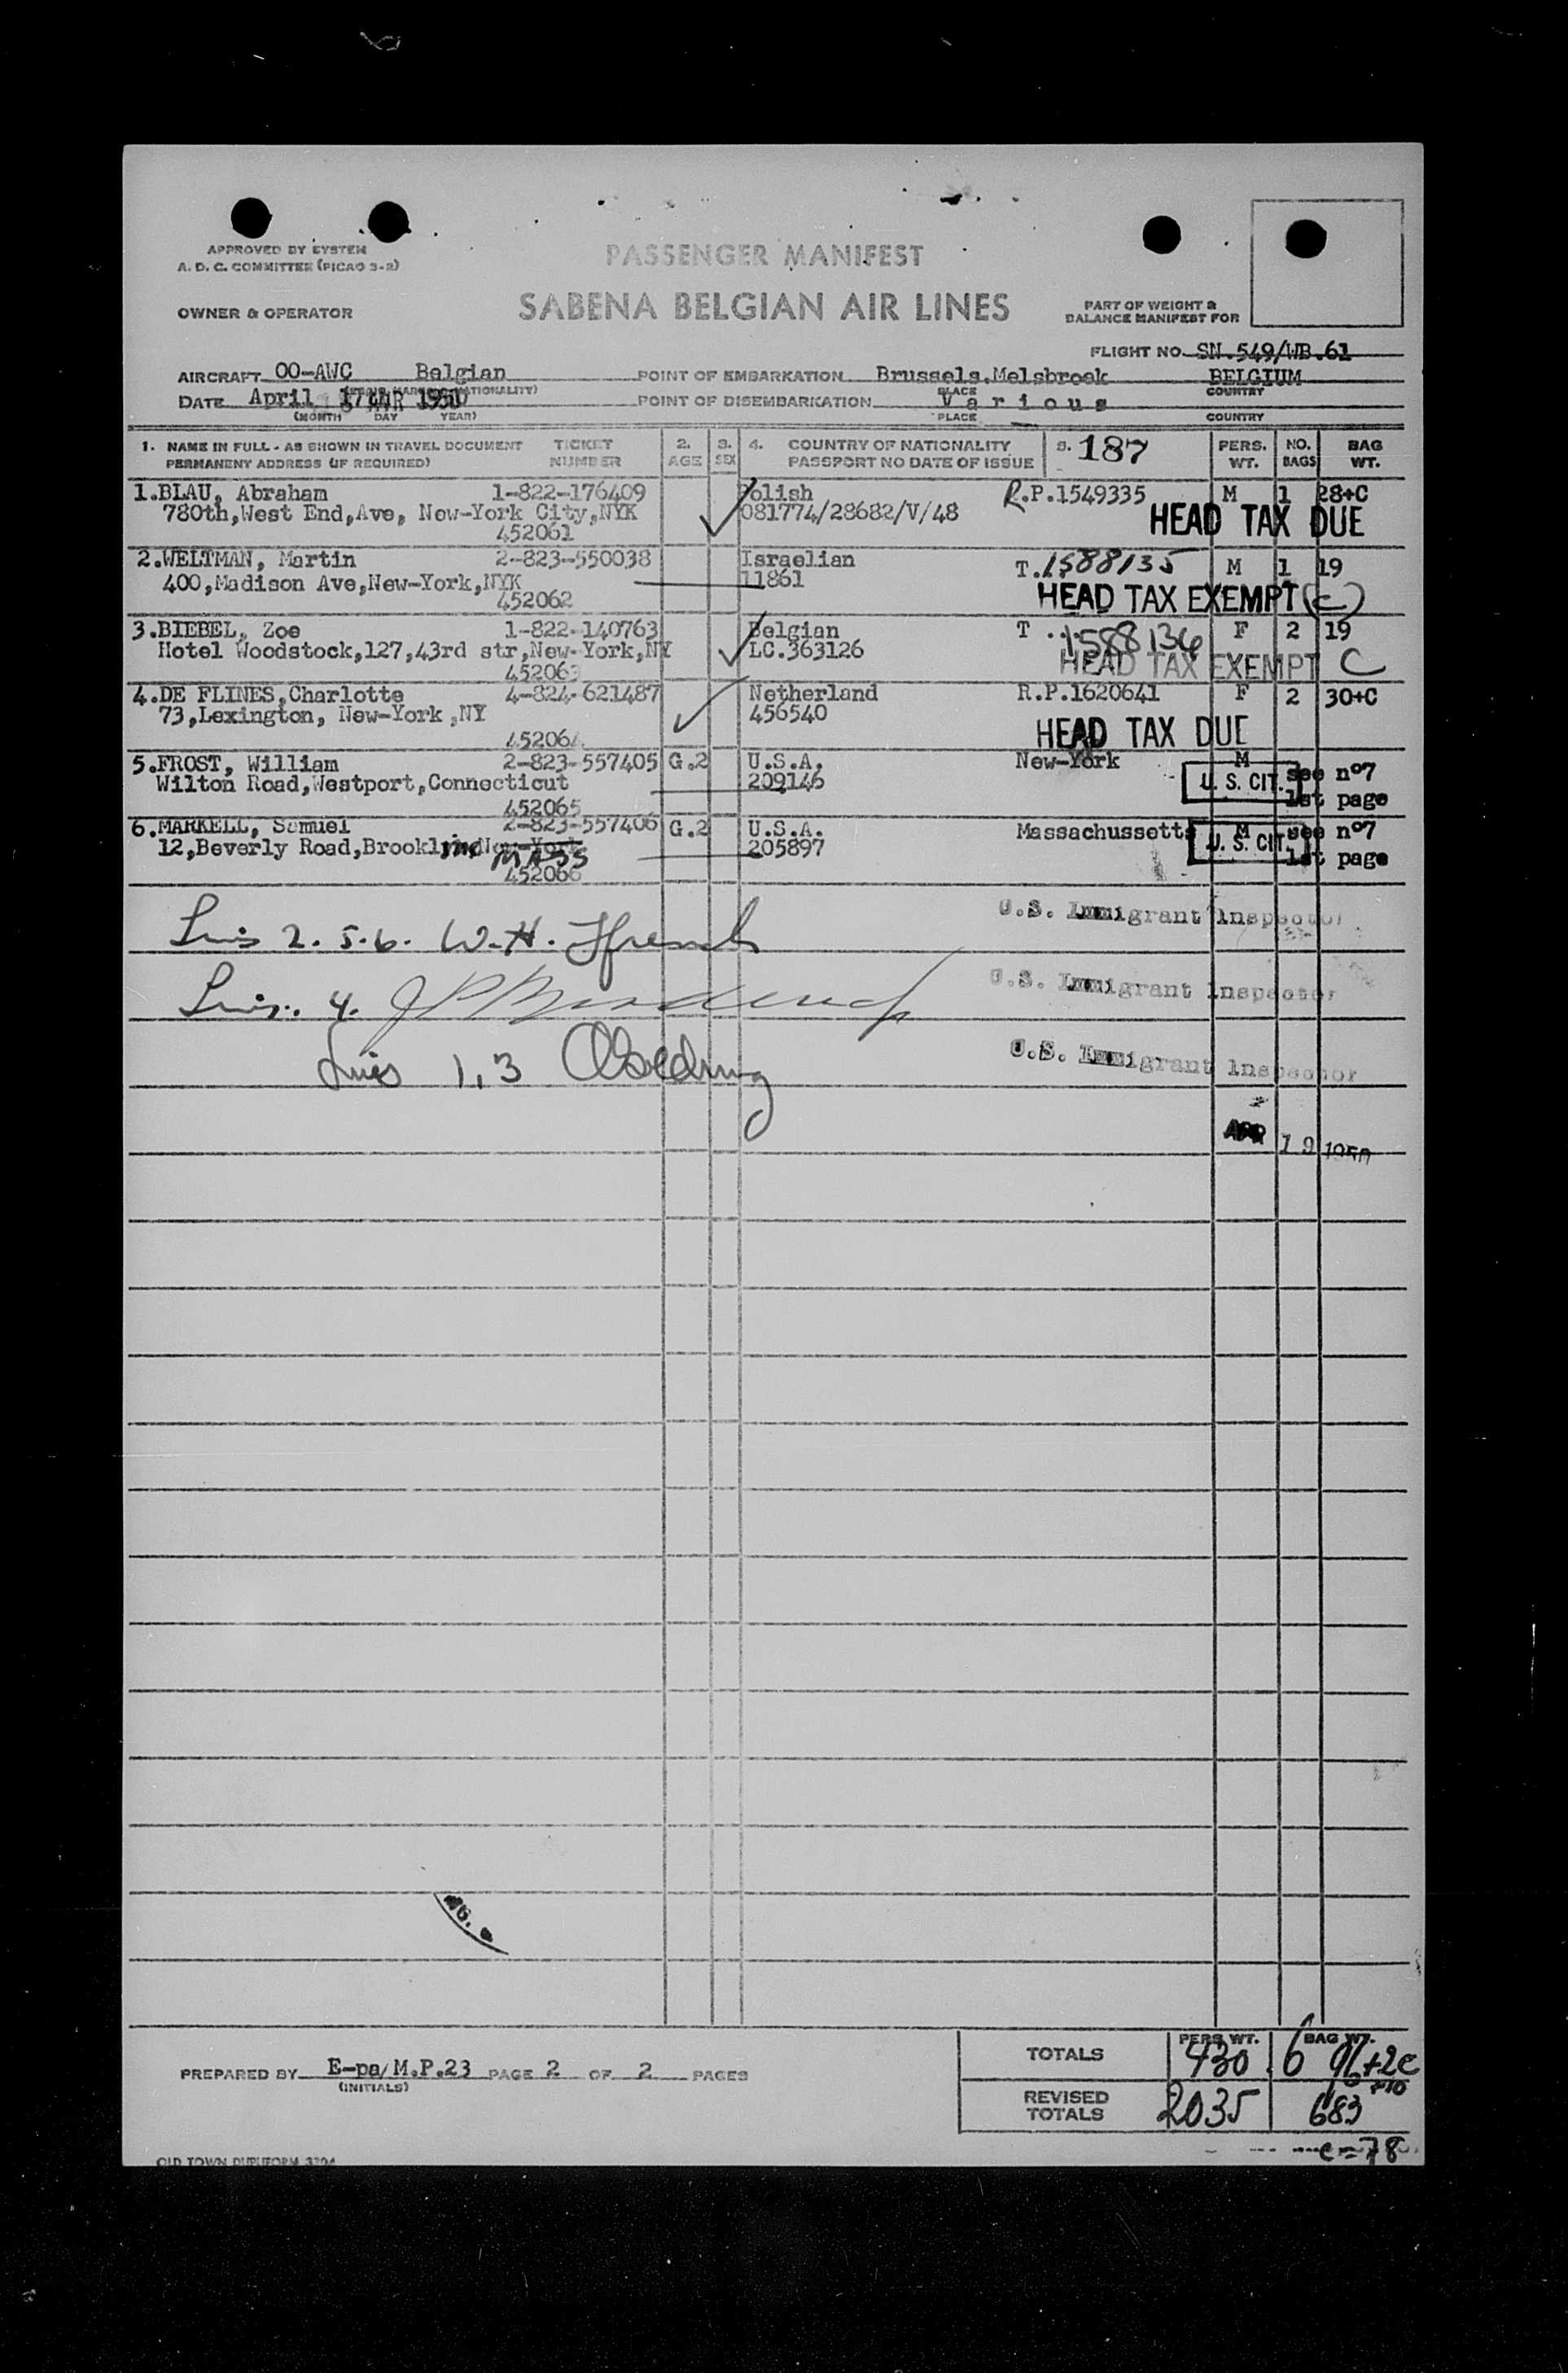 APPROVED BY SYSTEM
A. D. C. COMMITTEE (PICAO 3-2)
PASSENGER MANIFEST
OWNER & OPERATOR
SABENA BELGIAN AIR LINES
PART OF WEIGHT &
BALANCE MANIFEST FOR
FLIGHT NO. SN.549/WB.61
AIRCRAFT OO-AWC Belgian
POINT OF EMBARKATION Brussels.Melsbroek BELGIUM
PLACE COUNTRY
DATE April 17th 1950
(MONTH DAY YEAR)
POINT OF DISEMBARKATION Various
PLACE COUNTRY
1. NAME IN FULL - AS SHOWN IN TRAVEL DOCUMENT TICKET 2. 3. 4. COUNTRY OF NATIONALITY 5. 187 PERS. NO. BAG
PERMANENT ADDRESS (IF REQUIRED) NUMBER AGE SEX PASSPORT NO DATE OF ISSUE WT. BAGS WT.
1.BLAU, Abraham 1-822-176409 Polish R.P.1549335 M 1 28+C
780th,West End,Ave, New-York City,NYK 081774/28682/V/48 HEAD TAX DUE
452061
2.WELTMAN, Martin 2-823-550038 Israelian T.1588135 M 1 19
400,Madison Ave,New-York,NYK 11861 HEAD TAX EXEMPT (C)
452062
3.BIEBEL, Zoe 1-822-140763 Belgian T... 1588136 F 2 19
Hotel Woodstock,127,43rd str,New-York,NY LC.363126 HEAD TAX EXEMPT C
452063
4.DE FLINES,Charlotte 4-824-621487 Netherland R.P.1620641 F 2 30+C
73,Lexington, New-York,NY 456540 HEAD TAX DUE
452064
5.FROST, William 2-823-557405 G.2 U.S.A. New-York M
Wilton Road,Westport,Connecticut 209146 U. S. CIT. see n°7
452065 1st page
6.MARKELL, Samuel 2-823-557406 G.2 U.S.A. Massachussetts M see n°7
12,Beverly Road,Brooklyn,New-York MASS 205897 U. S. CIT. 1st page
452066
2. 5. 6. W. H. U.S. Immigrant Inspector
4. U.S. Immigrant Inspector
1, 3 U.S. Immigrant Inspector
APR 19 1950
No.
TOTALS PERS WT. 430 6 BAG WT. 96+2C
PREPARED BY E-pa/M.P.23 PAGE 2 OF 2 PAGES
(INITIALS)
REVISED TOTALS 2035 683
c=78
OLD TOWN DUPLIFORM 3304